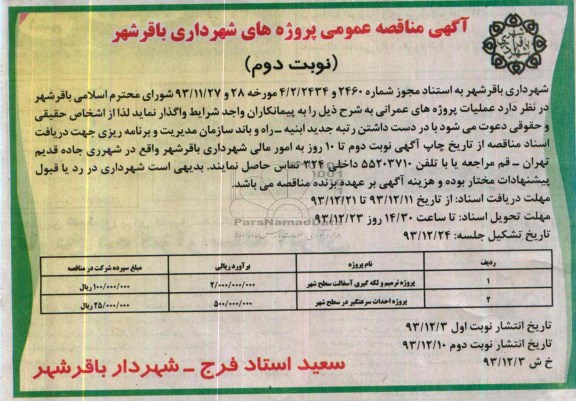 آگهی مناقصه عمومی پروژه های شهرداری باقرشهر
(نوبت دوم)
شهرداری باقرشهر به استناد مجوز شماره ۲۴۶۰ و ۴/۲/۲۴۳۴ مورخه ۲۸ و ۹۳/۱۱/۲۷ شورای محترم اسلامی باقرشهر
در نظر دارد عملیات پروژه های عمرانی به شرح ذیل را به پیمانکاران واجد شرایط واگذار نماید لذا از اشخاص حقیقی
و حقوقی دعوت می شود با در دست داشتن رتبه جدید ابنیه ـ راه و باند سازمان مدیریت و برنامه ریزی جهت دریافت
اسناد مناقصه از تاریخ چاپ آگهی نوبت دوم تا ۱۰ روز به امور مالی شهرداری باقرشهر واقع در شهرری جاده قدیم
تهران ـ قم مراجعه یا با تلفن ۵۵۲۰۳۷۱۰ داخلی ۳۲۴ تماس حاصل نمایند. بدیهی است شهرداری در رد یا قبول
پیشنهادات مختار بوده و هزینه آگهی بر عهده برنده مناقصه می باشد.
مهلت دریافت اسناد: از تاریخ ۹۳/۱۲/۱۱ تا ۹۳/۱۲/۲۱
مهلت تحویل اسناد: تا ساعت ۱۴/۳۰ روز ۹۳/۱۲/۲۳
تاریخ تشکیل جلسه: ۹۳/۱۲/۲۴
ParsNamadData
ردیف نام پروژه برآورد ریالی مبلغ سپرده شرکت در مناقصه
۱ پروژه ترمیم و لکه گیری آسفالت سطح شهر ۲/۰۰۰/۰۰۰/۰۰۰ ۱۰۰/۰۰۰/۰۰۰ ریال
۲ پروژه احداث سرعتگیر در سطح شهر ۵۰۰/۰۰۰/۰۰۰ ۲۵/۰۰۰/۰۰۰ ریال
تاریخ انتشار نوبت اول ۹۳/۱۲/۳
تاریخ انتشار نوبت دوم ۹۳/۱۲/۱۰
خ ش ۹۳/۱۲/۳
سعید استاد فرج ـ شهردار باقرشهر